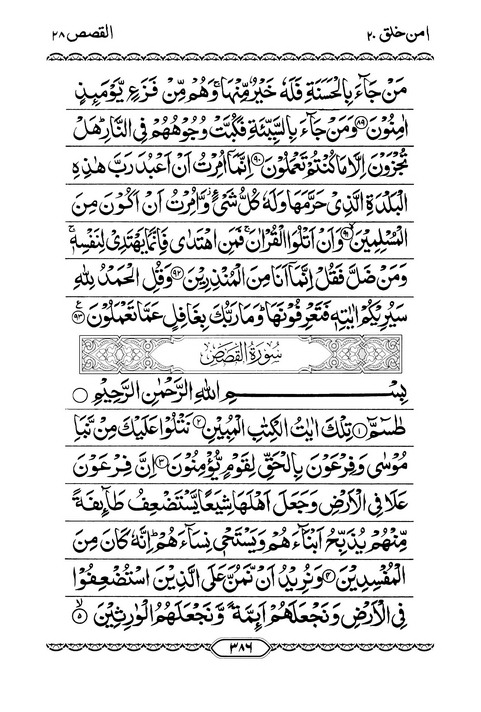 امن خلق ۲۰
القصص ۲۸
مَنْ جَآءَ بِالْحَسَنَةِ فَلَهٗ خَيْرٌ مِّنْهَا ۚ وَهُمْ مِّنْ فَزَعٍ يَّوْمَىِٕذٍ
اٰمِنُوْنَ ﴿۸۹﴾ وَمَنْ جَآءَ بِالسَّيِّئَةِ فَكُبَّتْ وُجُوْهُهُمْ فِى النَّارِ ؕ هَلْ
تُجْزَوْنَ اِلَّا مَا كُنْتُمْ تَعْمَلُوْنَ ﴿۹۰﴾ اِنَّمَاۤ اُمِرْتُ اَنْ اَعْبُدَ رَبَّ هٰذِهِ
الْبَلْدَةِ الَّذِىْ حَرَّمَهَا وَلَهٗ كُلُّ شَىْءٍ ؗ وَّاُمِرْتُ اَنْ اَكُوْنَ مِنَ
الْمُسْلِمِيْنَ ﴿۹۱﴾ وَاَنْ اَتْلُوَا الْقُرْاٰنَ ۚ فَمَنِ اهْتَدٰى فَاِنَّمَا يَهْتَدِىْ لِنَفْسِهٖ ۚ
وَمَنْ ضَلَّ فَقُلْ اِنَّمَاۤ اَنَا مِنَ الْمُنْذِرِيْنَ ﴿۹۲﴾ وَقُلِ الْحَمْدُ لِلّٰهِ
سَيُرِيْكُمْ اٰيٰتِهٖ فَتَعْرِفُوْنَهَا ؕ وَمَا رَبُّكَ بِغَافِلٍ عَمَّا تَعْمَلُوْنَ ﴿۹۳﴾ ع
سُوْرَةُ الْقَصَصِ
بِسْمِ اللّٰهِ الرَّحْمٰنِ الرَّحِيْمِ
طٰسٓمّٓ ﴿۱﴾ تِلْكَ اٰيٰتُ الْكِتٰبِ الْمُبِيْنِ ﴿۲﴾ نَتْلُوْا عَلَيْكَ مِنْ نَّبَاِ
مُوْسٰى وَفِرْعَوْنَ بِالْحَقِّ لِقَوْمٍ يُّؤْمِنُوْنَ ﴿۳﴾ اِنَّ فِرْعَوْنَ
عَلَا فِى الْاَرْضِ وَجَعَلَ اَهْلَهَا شِيَعًا يَّسْتَضْعِفُ طَآىِٕفَةً
مِّنْهُمْ يُذَبِّحُ اَبْنَآءَهُمْ وَيَسْتَحْىٖ نِسَآءَهُمْ ؕ اِنَّهٗ كَانَ مِنَ
الْمُفْسِدِيْنَ ﴿۴﴾ وَنُرِيْدُ اَنْ نَّمُنَّ عَلَى الَّذِيْنَ اسْتُضْعِفُوْا
فِى الْاَرْضِ وَنَجْعَلَهُمْ اَىِٕمَّةً وَّنَجْعَلَهُمُ الْوٰرِثِيْنَ ۙ﴿۵﴾
۳۸۶